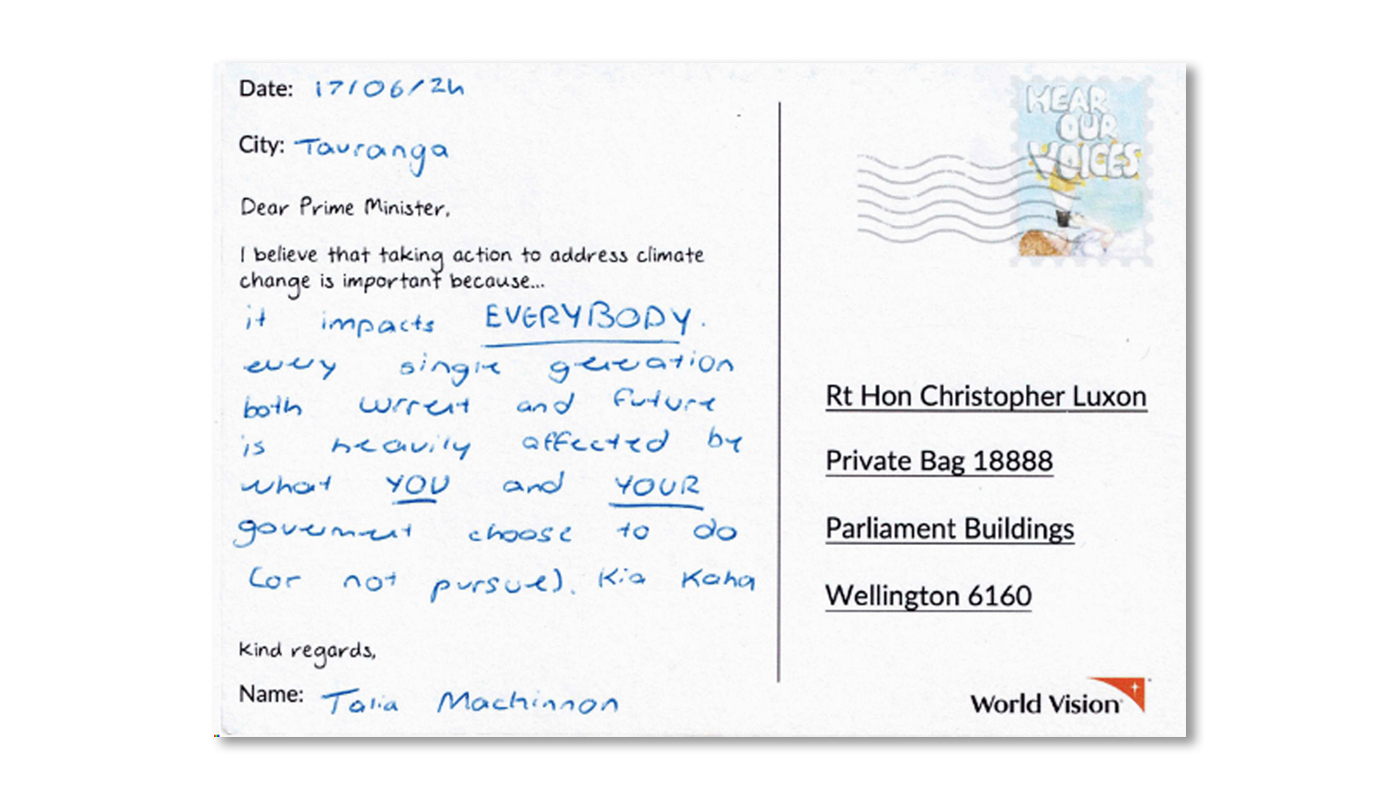 Date: 17/06/24
City: Tauranga
Dear Prime Minister,
I believe that taking action to address climate
change is important because...
it impacts EVERYBODY.
every single generation
both current and future
is heavily affected by
what YOU and YOUR
government choose to do
(or not pursue). Kia Kaha
Kind regards,
Name: Talia Machinnon
HEAR
OUR
VOICES
Rt Hon Christopher Luxon
Private Bag 18888
Parliament Buildings
Wellington 6160
World Vision